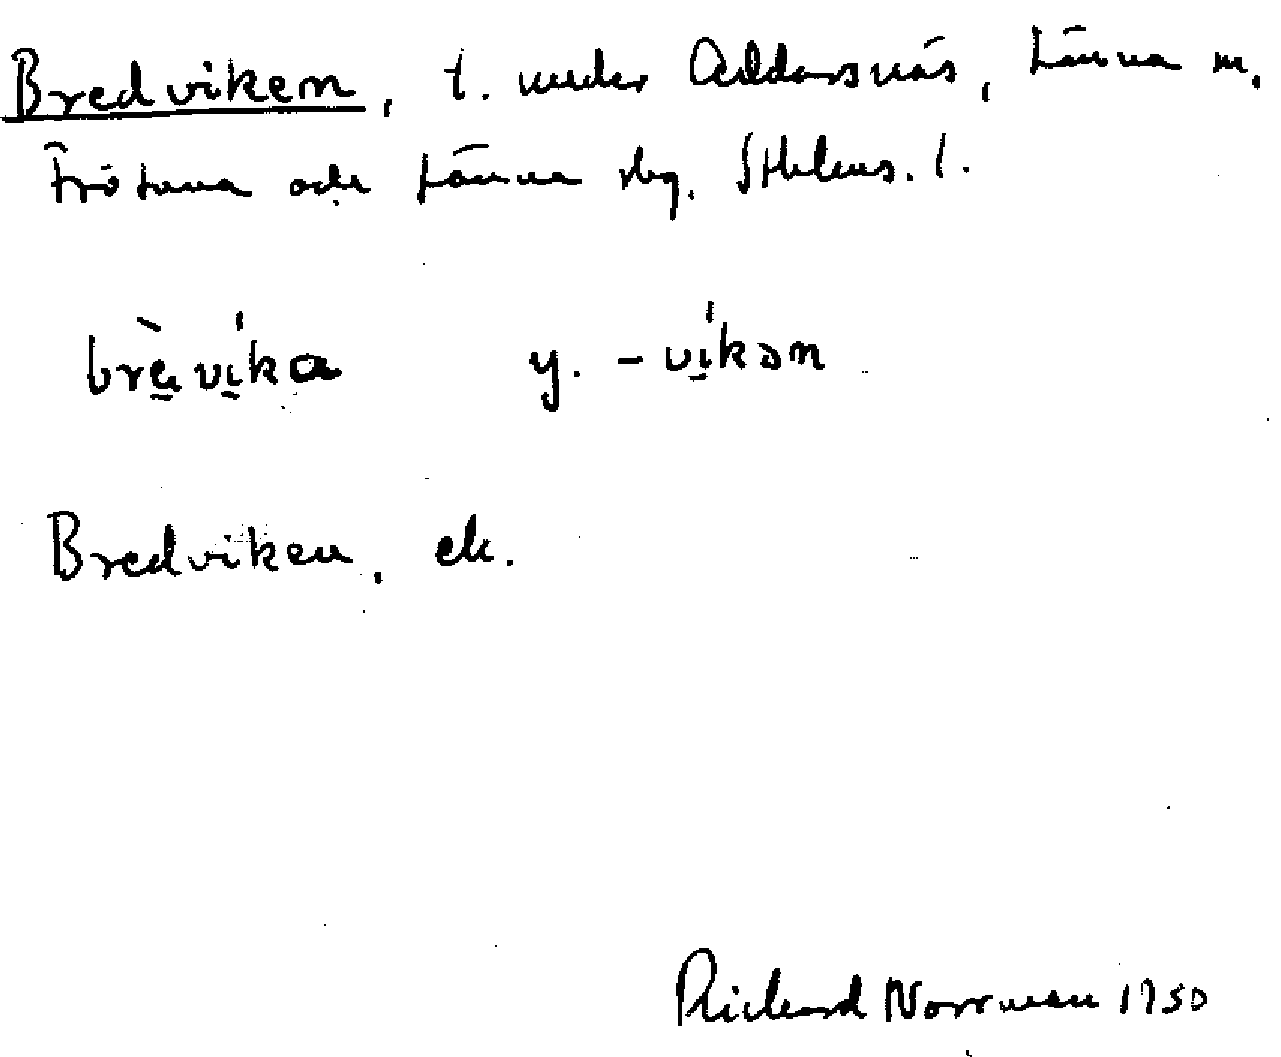 Bredviken, t. under Addarsnäs, Länna sn.
Frötuna och Länna skg. Sthlms. l.
brèvíka y. -víkən
Bredviken, ek.
Rickard Norrman 1950